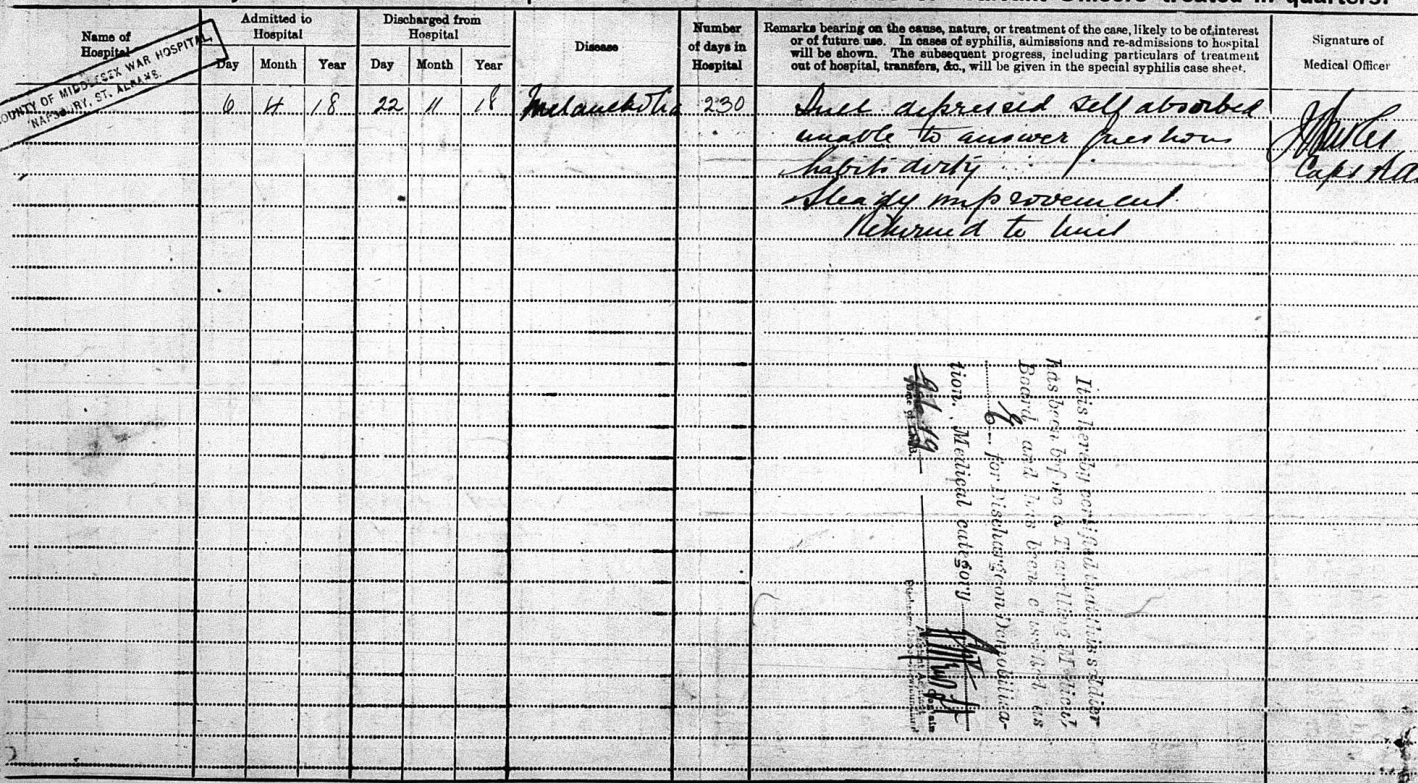 Warrant Officers treated in quarters.
Name of Hospital
Admitted to Hospital
Discharged from Hospital
Disease
Number of days in Hospital
Remarks bearing on the cause, nature, or treatment of the case, likely to be of interest
or of future use. In cases of syphilis, admissions and re-admissions to hospital
will be shown. The subsequent progress, including particulars of treatment
out of hospital, transfers, &c., will be given in the special syphilis case sheet.
Signature of
Medical Officer
Day Month Year Day Month Year
COUNTY OF MIDDLESEX WAR HOSPITAL
NAPSBURY, ST. ALBANS.
6 4 18 22 11 18 Melancholia 230 Dull depressed self absorbed
unable to answer questions
habits dirty
Steady improvement
Returned to Unit
It is hereby certified that this soldier
has been before a Travelling Medical
Board, and has been classified as
for Discharge on Demobiliza-
tion. Medical category
Captain